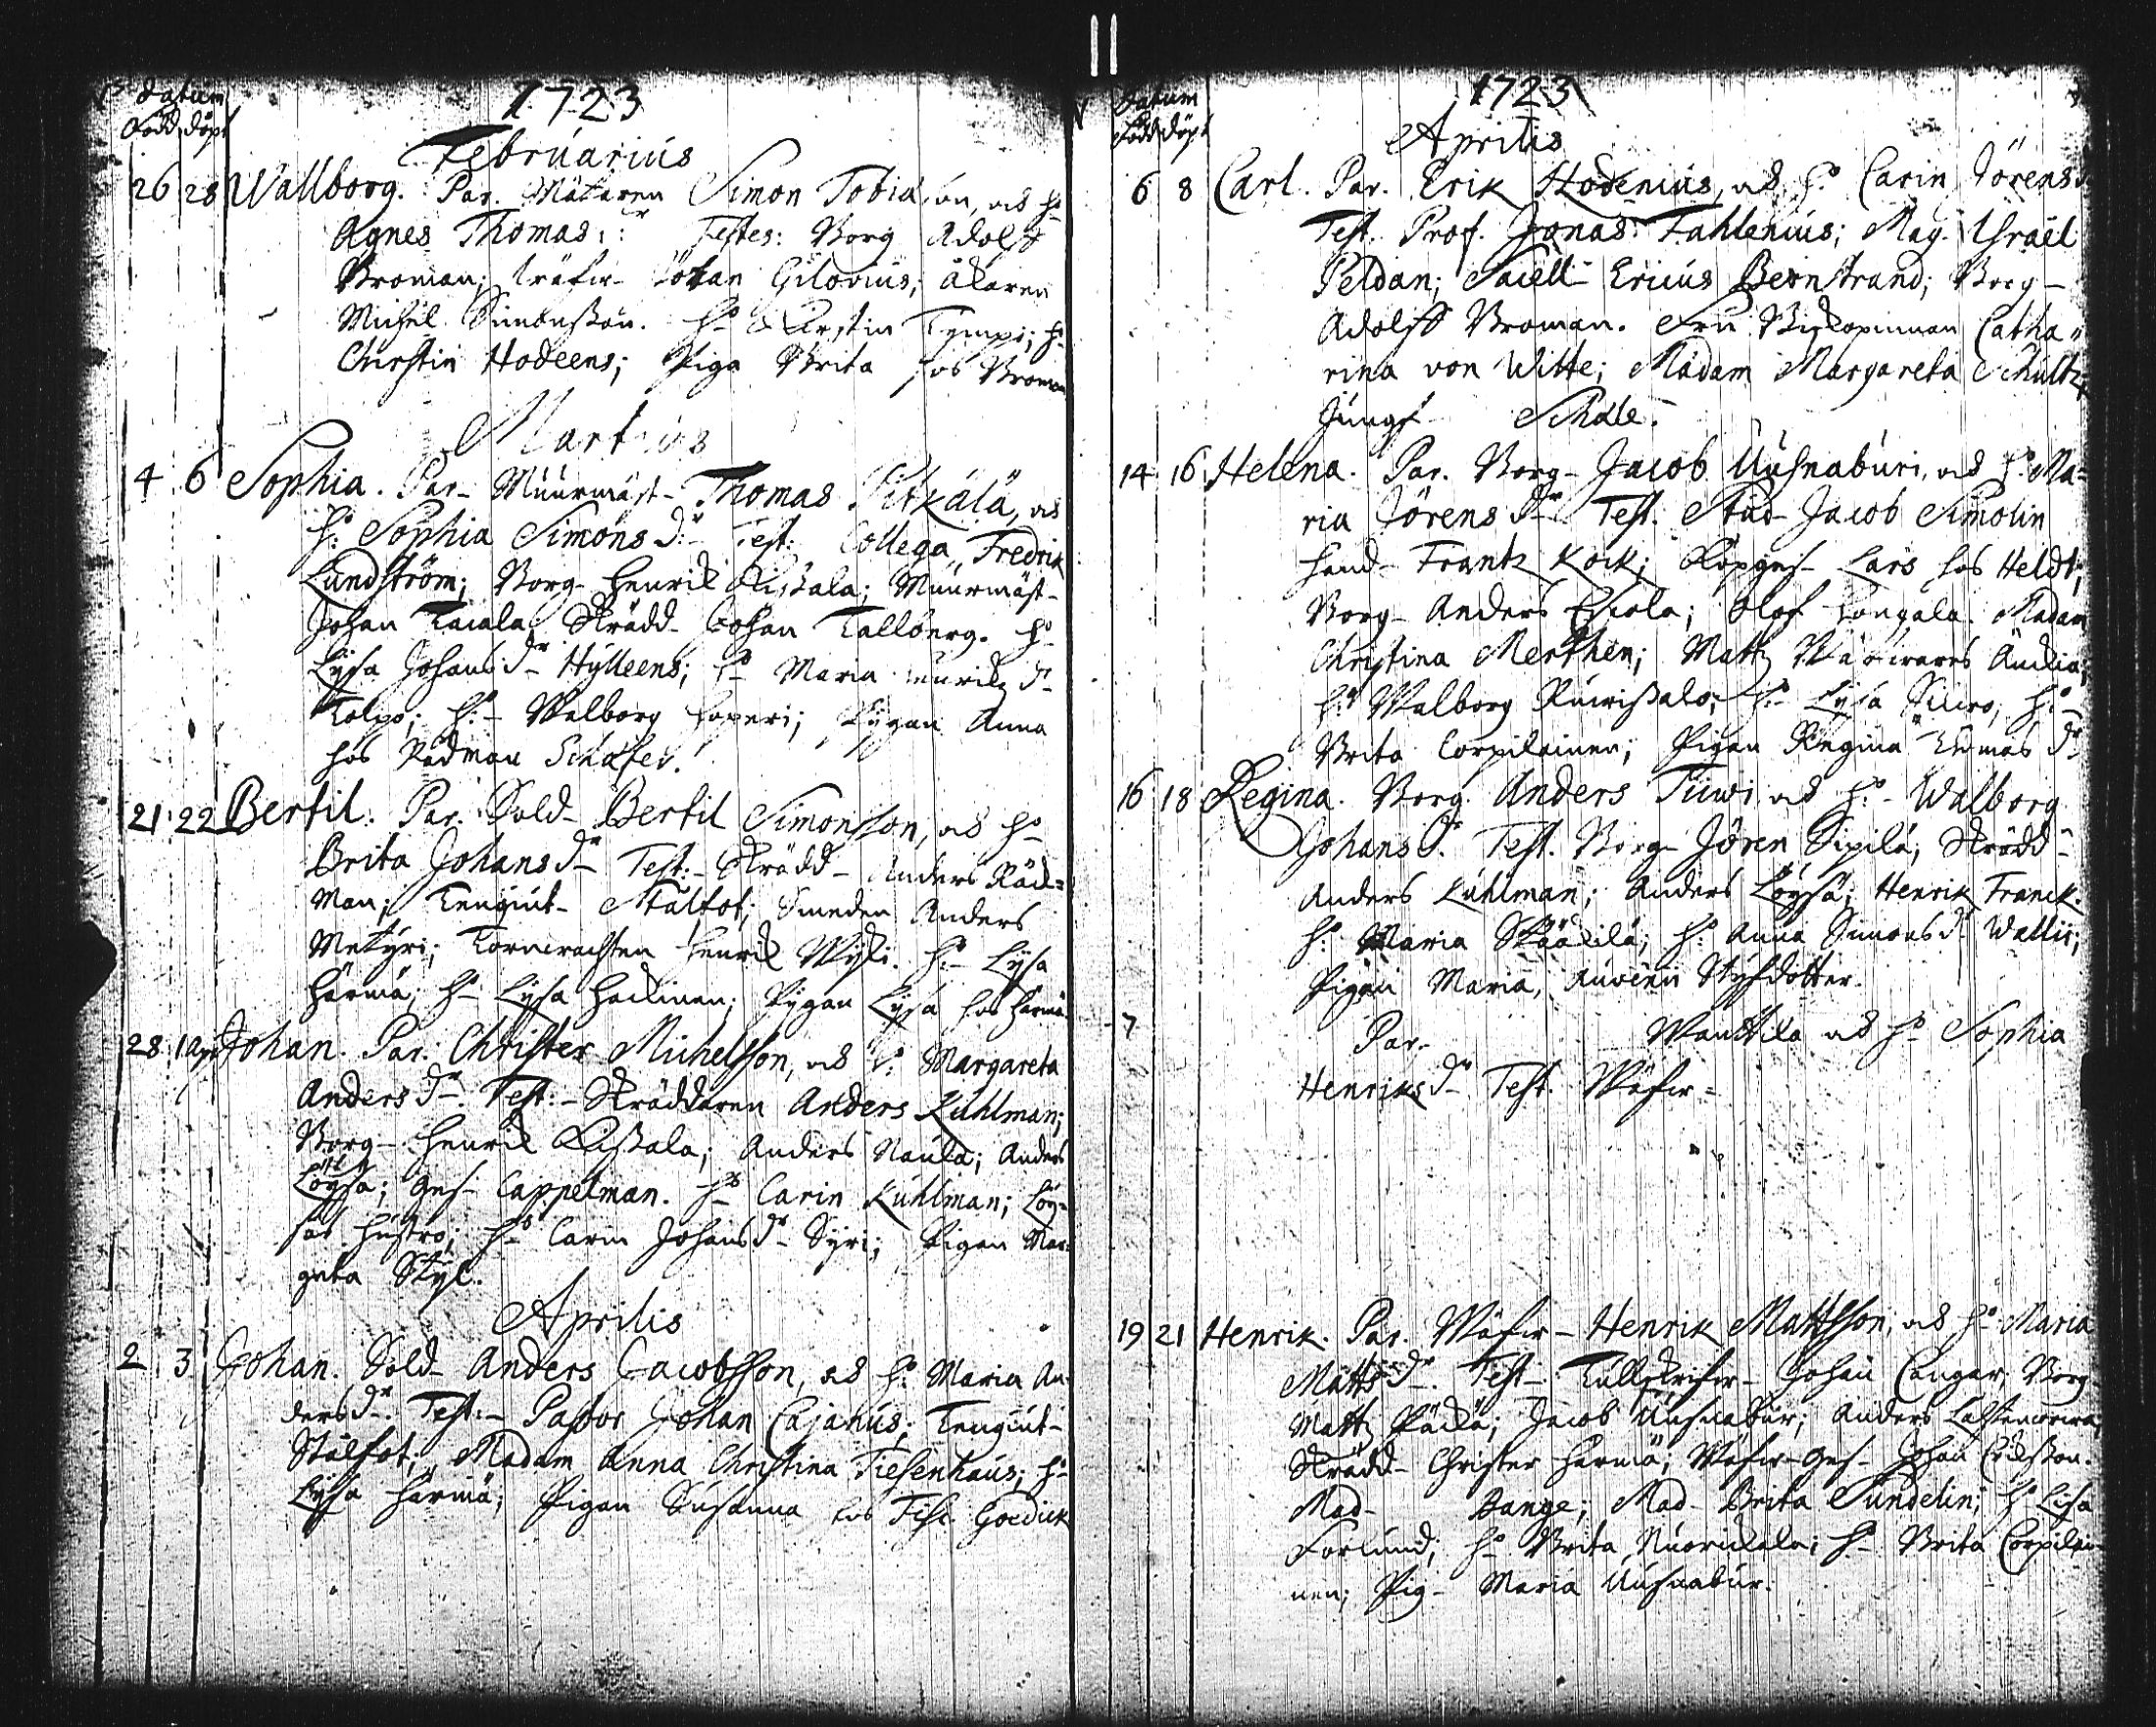 Datum
Född döpt
1723
Februarius
26 28 Wallborg. Par. Mätaren Simon Tobiæson, och h:o
Agnes Thomasd:r Testes: Borg Adolff
Broman; Johan Gilovius; åkaren
Michel Simonsson. H:o Kirstin Tympi; h:o
Christin Hodeens; Piga Brita hos Broman
Martius
4 6 Sophia. Par. Muurmäst- Thomas Pitkälä, och
h: Sophia Simons d:r Test: Collega Fredrik
Lundström; Borg- Henrik Kissala; Muurmäst-
Johan Taiala, Skrädd- Johan Tallberg. h:o
Lysa Johans d:r Hylleens; h:o Maria Henriks d:r
Tolpo; h:o Walborg Haperi; Pygan Anna
hos Rådman Schæfer.
21 22 Bertil. Par. Sold- Bertil Simonsson, och h:o
Brita Johans d:r Test:- Skrädd- Anders Räd=
man; Leugnt- Stålfot; Smeden Anders
Metyri; Tornwachten Henrik Wyki. h:o Lysa
Härmä; h:o Lysa Hackinen; Pygan Lysa hos Härmä
28 1 Apr Johan. Par. Christer Michelsson, och h: Margareta
Anders d:r. Test:- Skräddaren Anders Kuhlman;
Borg- Henrik Kissala; Anders Naula; Anders
Löysä; Ges- Cappelman. h:o Carin Kuhlman; Löy-
säs hustro; h:o Carin Johans d:r Syri; Pigan Mar-
greta Styl.
Aprilis
2 3 Johan. Sold- Anders Jacobsson, och h:o Maria An-
ders d:r. Test:- Pastor Johan Cajanus; Leugnt-
Stålfot; Madam Anna Christina Tiesenhaus; h:o
Lysa Härmä; Pigan Susanna hos Fisc. Goedick
Datum
Född döpt
1723
Aprilis
6 8 Carl. Par. Erik Hodenius, och h:o Carin Jörens d:
Test. Prof. Jonas Fahlenius; Mag. Israël
Peldan; Sacell- Ericus Bernstrand; Borg-
Adolff Broman. Fru Biskopinnan Catha-
rina von Witte; Madam Margareta Schultz
Jungf Schæle.
14 16 Helena. Par. Borg- Jacob Uusnaburi, och h:o Ma-
ria Jörens d:r Test. Stud- Jacob Simolin
Hand- Frantz Kock; Köpges- Lars hos Heldt;
Borg- Anders Escola; Olof Kangala. Madam
Christina Merthen; Matts Änckia;
h:o Walborg Ruwissalo; h:o Lysa h:o
Brita Corpilainen; Pigan Regina Thomas d:r
16 18 Regina. Borg. Anders Tuwi och h:o Walborg
Johans d:r. Test. Borg- Jören Sipilä; Skrädd-
Anders Kuhlman; Anders Löysä; Henrik Franck.
h:o Maria h:o Anna Simons d:r Wallis;
Pigan Maria, Styfdotter.
7
Par. Wanttila och h:o Sophia
Henriks d:r Test.
19 21 Henrik. Par. Henrik Mattsson, och h:o Maria
Matts d:r. Test- Tullskrifw- Johan Cangar; Borg
Matts Jacob Uusnabur; Anders
Skrädd- Christer Härmä; Ges- Johan Erksson.
Mad- Bange; Mad- Brita Sundelin; h:o Lisa
Forlund; h:o Brita h:o Brita Corpilai-
nen; Pig- Maria Uusnabur.